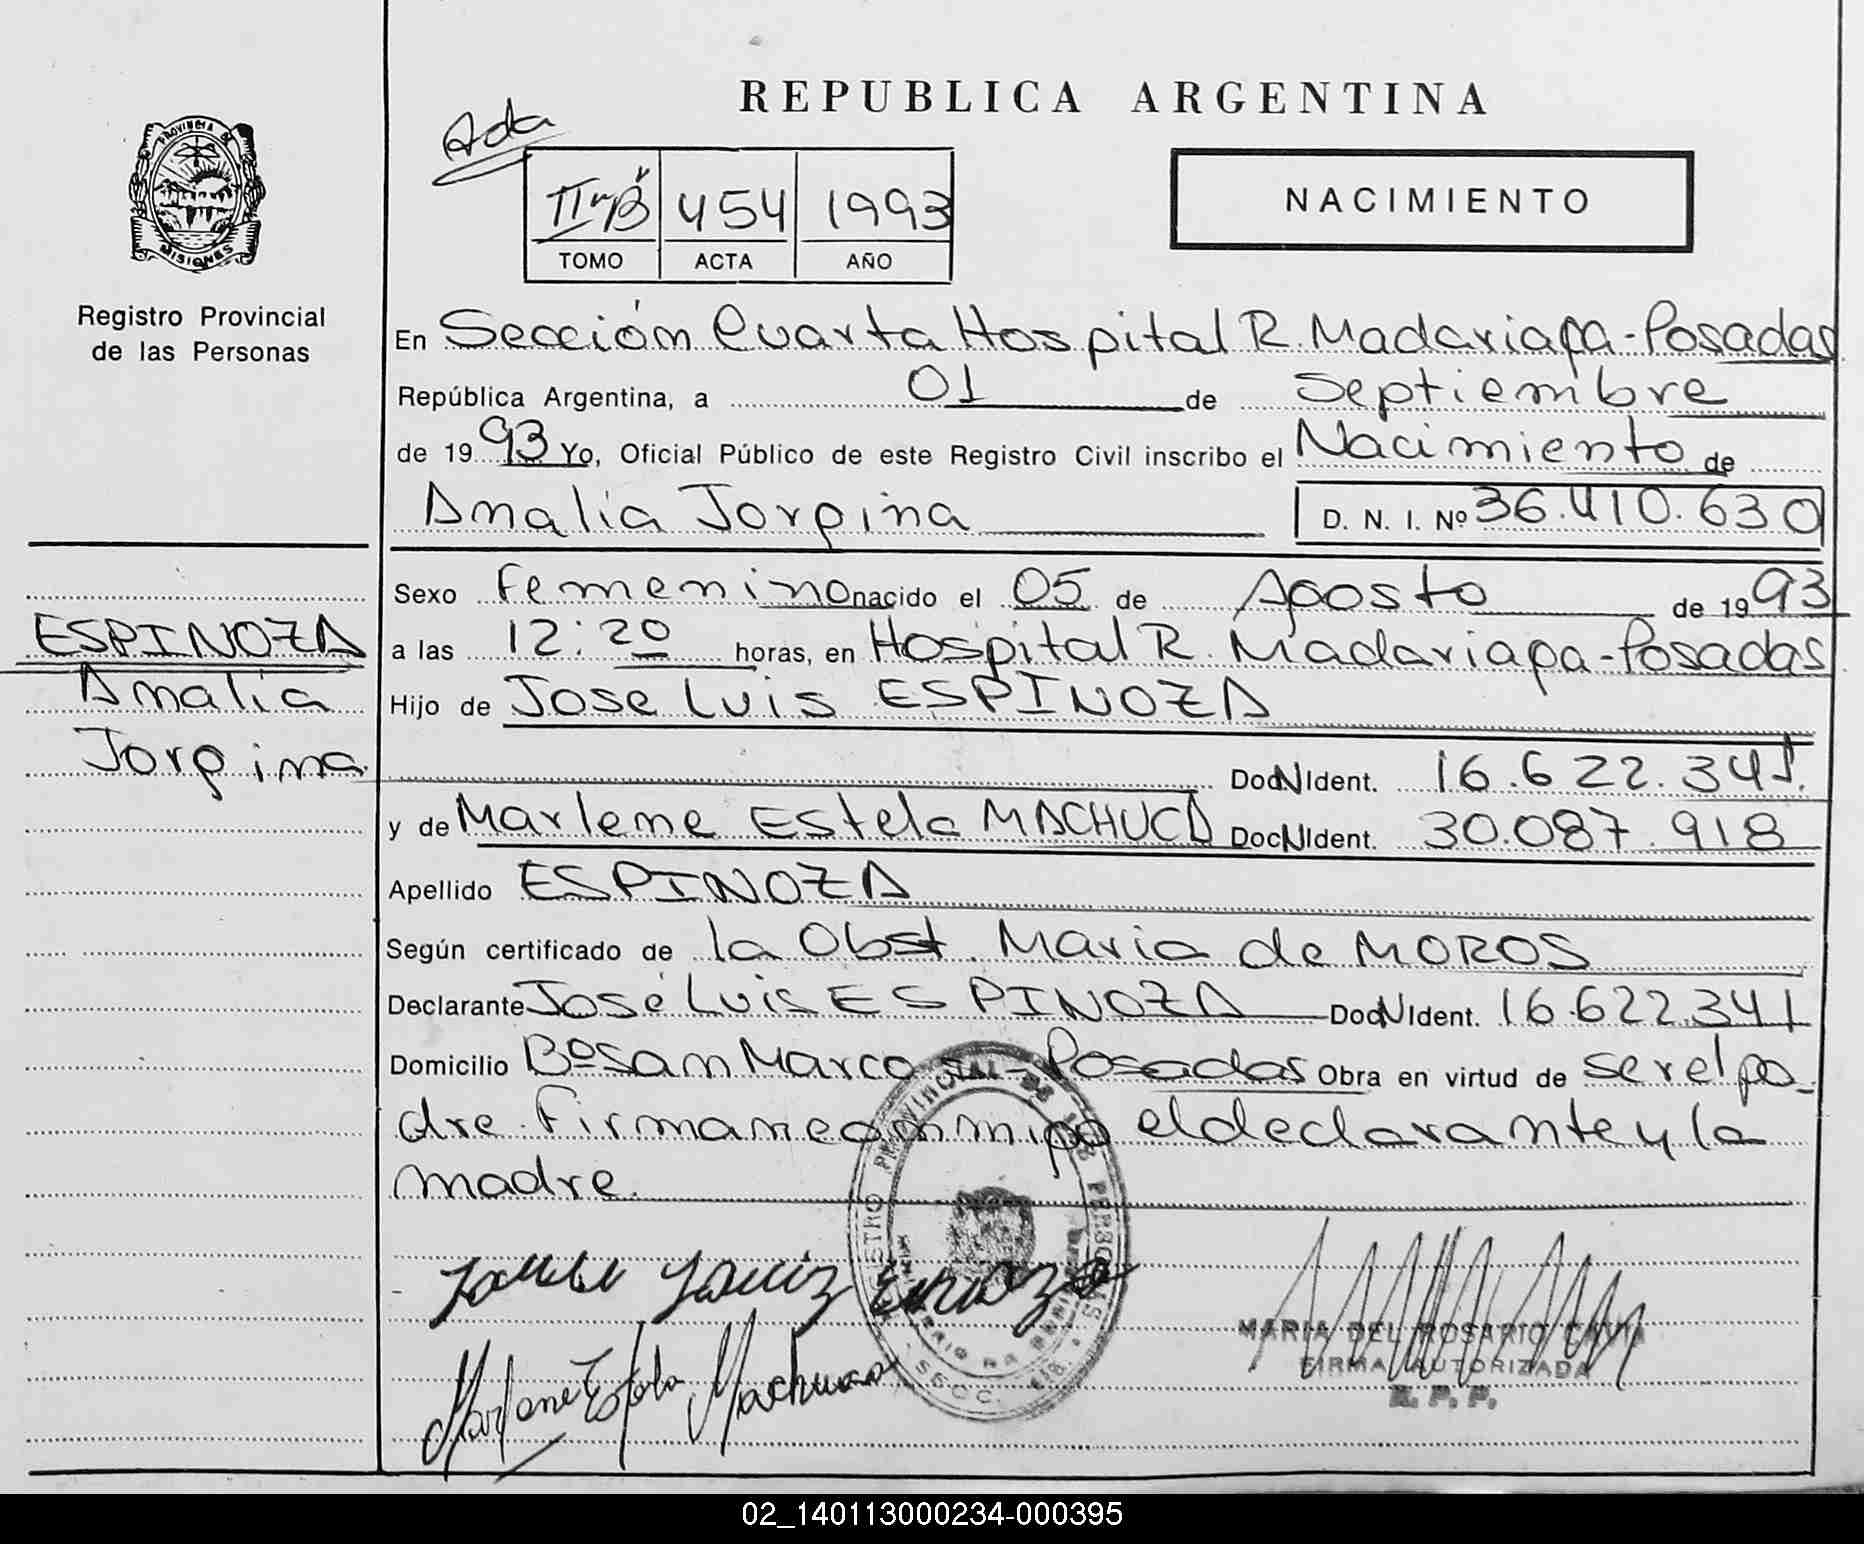 REPUBLICA ARGENTINA
Ada
PROVINCIA DE
MISIONES
Registro Provincial
de las Personas
454 1993
TOMO ACTA AÑO
NACIMIENTO
En Sección Cuarta Hospital R. Madariaga-Posadas
República Argentina, a 01 de Septiembre
de 1993 Yo, Oficial Público de este Registro Civil inscribo el Nacimiento de
Amalia Jorgina D. N. I. Nº 36.410.630
ESPINOZA
Amalia
Jorgina
Sexo Femenino nacido el 05 de Agosto de 1993
a las 12:20 horas, en Hospital R. Madariaga-Posadas
Hijo de Jose Luis ESPINOZA
Doc N Ident. 16.622.341.
y de Marlene Estela MACHUCA Doc N Ident. 30.087.918
Apellido ESPINOZA
Según certificado de la Obst. Maria de MOROS
Declarante José Luis ESPINOZA Doc N Ident. 16.622.341
Domicilio Bº San Marco s/n-Posadas Obra en virtud de ser el pa-
dre. Firman conmigo el declarante y la
madre.
Marlene Estela Machuca
MARIA DEL ROSARIO
FIRMA AUTORIZADA
R. P. P.
02_140113000234-000395